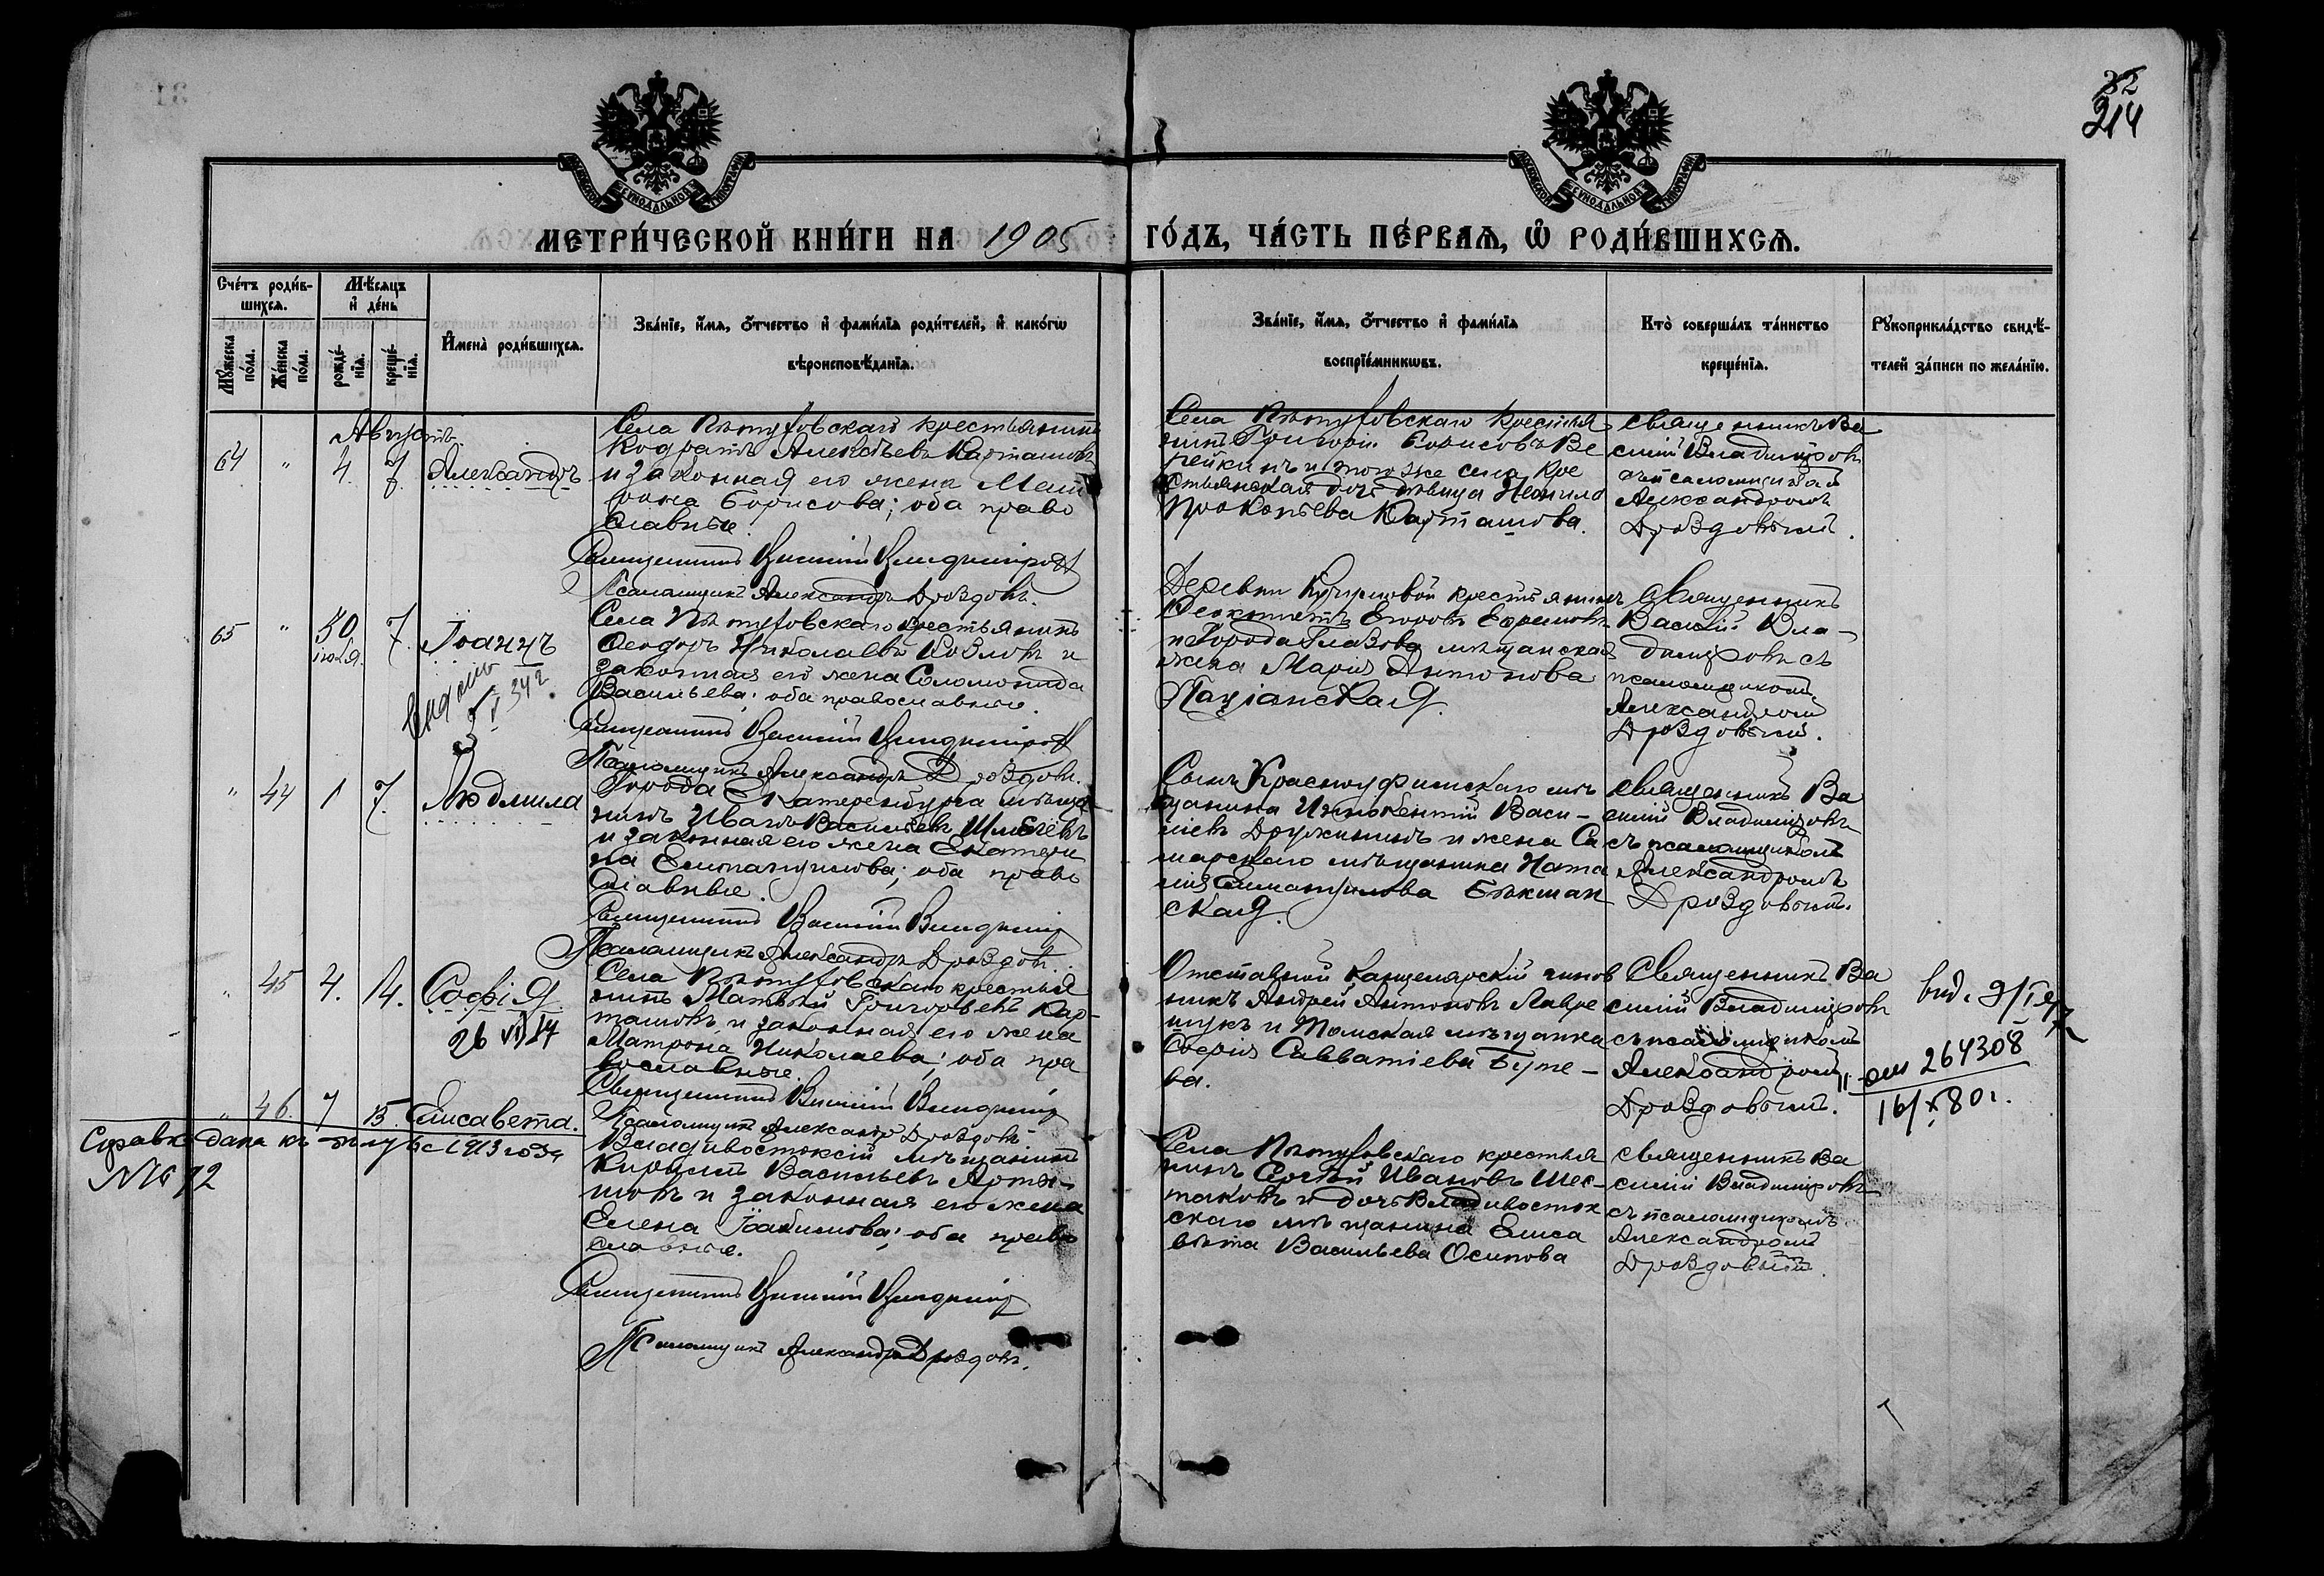 32
214
МЕТРИ́ЧЕСКОЙ КНИ́ГИ НА 1905 ГО́ДЪ, ЧА́СТЬ ПЕ́РВАѦ, Ѡ҆ РОДИ́ВШИХСѦ.
Сче́тъ роди́в-
шихсѧ.
Мꙋ́жеска по́ла.
Же́нска по́ла.
Мѣ́сѧцъ
и҆ де́нь
рожде́-
нїѧ.
креще́-
нїѧ.
И҆мена̀ роди́вшихсѧ.
Зва́нїе, и҆́мѧ, ѻ҆́тчество и҆ фами́лїѧ роди́телей, и҆ како́гѡ
вѣроисповѣ́данїѧ.
Зва́нїе, и҆́мѧ, ѻ҆́тчество и҆ фами́лїѧ
воспрїе́мникѡвъ.
Кто̀ соверша́лъ та́инство
креще́нїѧ.
Рꙋкоприкла́дство свидѣ́-
телей за́писи по жела́нїю.
Августъ.
64 " 4. 7. Александръ
Села Пѣтуховскаго крестьянинъ
Кодратъ Алексѣевъ Карташовъ
и законная его жена Мат
рона Борисова; оба право
славные.
Священникъ Василій Владиміровъ
Псаломщикъ Александръ Дроздовъ.
Села Пѣтуховскаго крестья
нинъ Григорій Борисовъ Ве
рейкинъ и того же села кре
стьянская дочь дѣвица Неонила
Прокопьева Карташова.
Священникъ Ва
силій Владиміровъ
съ псаломщикомъ
Александромъ
Дроздовымъ.
65 " 30 іюля. 7. Іоаннъ
Села Пѣтуховскаго крестьянинъ
Ѳеодоръ Николаевъ Козловъ и
законная его жена Соломонида
Васильева; оба православные.
Священникъ Василій Владиміровъ
Псаломщикъ Александръ Дроздовъ.
Деревни крестьянинъ
Егоровъ Ефремовъ
и города Глазова мѣщанская
жена Марія Антонова
Священникъ
Василій Вла-
диміровъ съ
псаломщикомъ
Александромъ
Дроздовымъ.
" 44 1 7. Людмила
Города Екатеренбурга мѣща
нинъ Иванъ Васильевъ
и законная его жена Екатери
на Елпатидилова; оба право
славные.
Священникъ Василій Владиміровъ
Псаломщикъ Александръ Дроздовъ.
Сынъ Красноуфимскаго мѣ
щанина Иннокентій Васи-
льевъ Дружининъ и жена Са
марскаго мѣщанина Ната
лія
ская.
Священникъ Ва
силій Владиміровъ
съ псаломщикомъ
Александромъ
Дроздовымъ.
" 45 4. 14. Софія
26 VI 14
Села Пѣтуховскаго крестья
нинъ Матвѣй Григорьевъ Кар-
ташовъ и законная его жена
Матрона Николаева; оба пра
вославные.
Священникъ Василій Владиміровъ
Псаломщикъ Александръ Дроздовъ
Отставной канцелярскій чинов
никъ Андрей Антоновъ Лавре
щукъ и Томская мѣщанка
Софія Савватіева Буте-
ва.
Священникъ Ва
силій Владиміровъ
съ псаломщикомъ
Александромъ
Дроздовымъ.
264308
16/X 80 г.
" 46. 7 15. Елисавета.
Справка дана къ дѣлу 1913 года
№ 72
Владивостокскій мѣщанинъ
Кириллъ Васильевъ
и законная его жена
Елена Іоакимова; оба право
славные.
Священникъ Василій Владиміровъ
Псаломщикъ Александръ Дроздовъ.
Села Пѣтуховскаго крестья
нинъ Сергѣй Ивановъ Шес-
таковъ и дочь Владивосток
скаго мѣщанина Елиса
вѣта Васильева Осипова
Священникъ Ва
силій Владиміровъ
съ псаломщикомъ
Александромъ
Дроздовымъ.